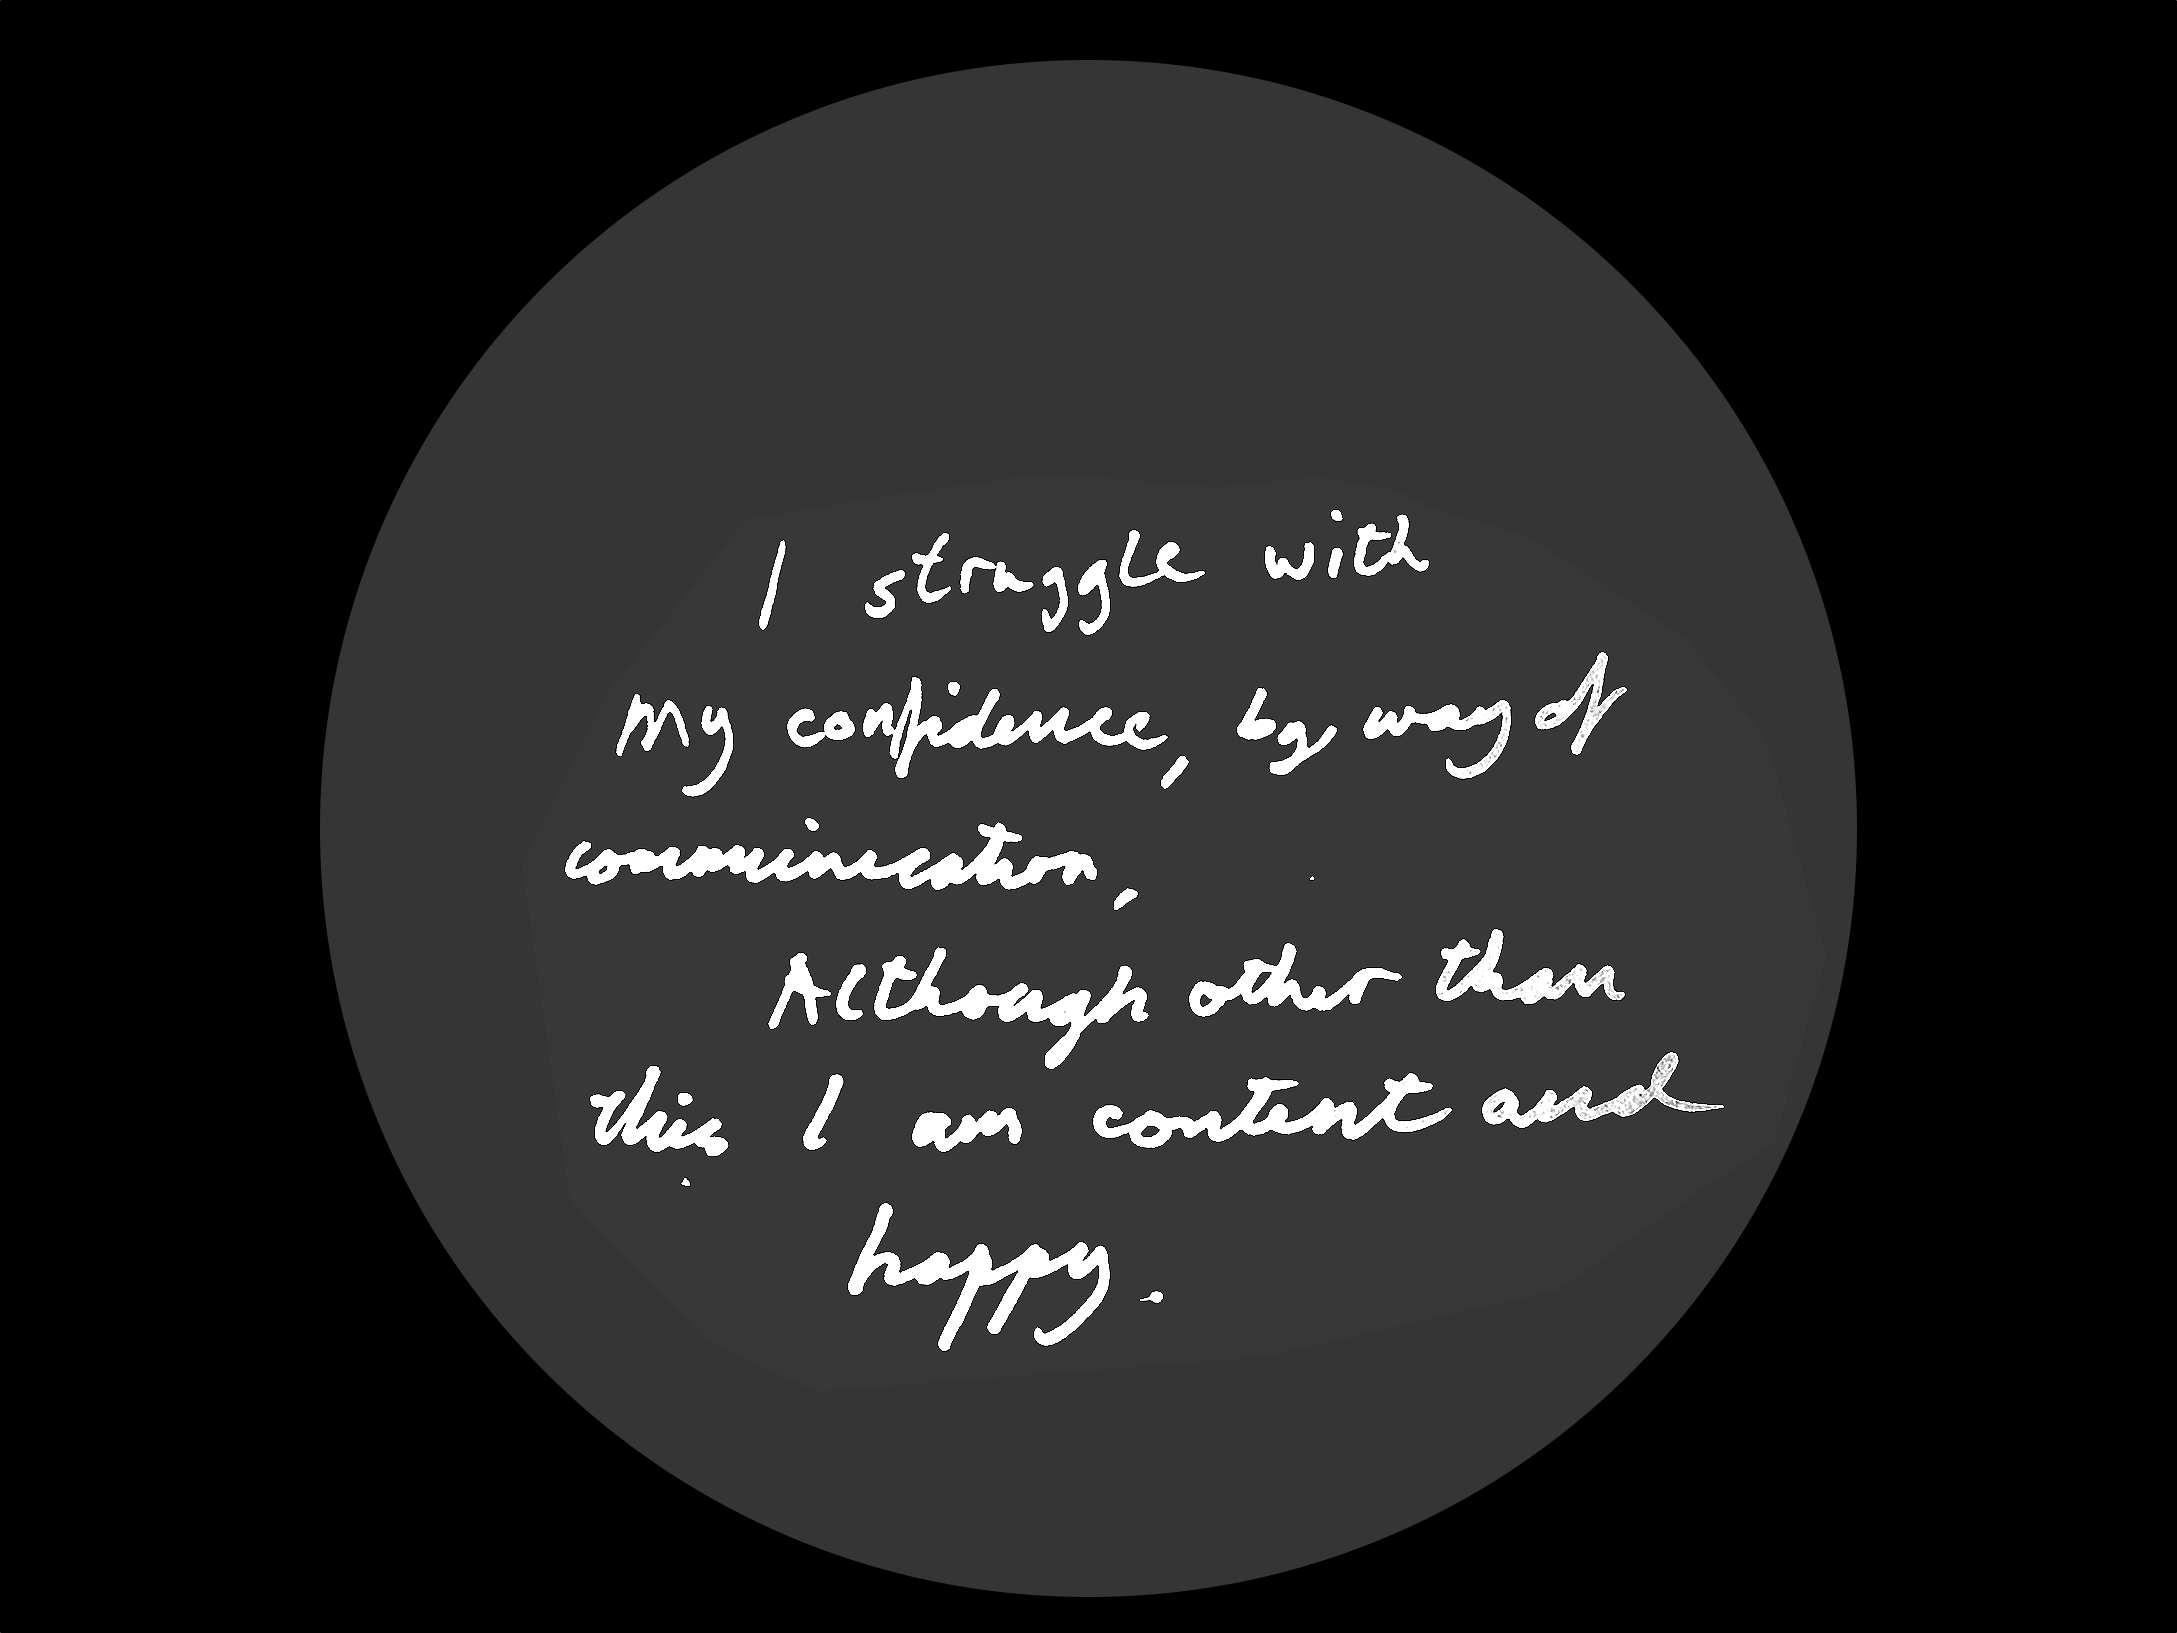 I struggle with
My confidence, by way of
communication,
Although other than
this I am content and
happy.